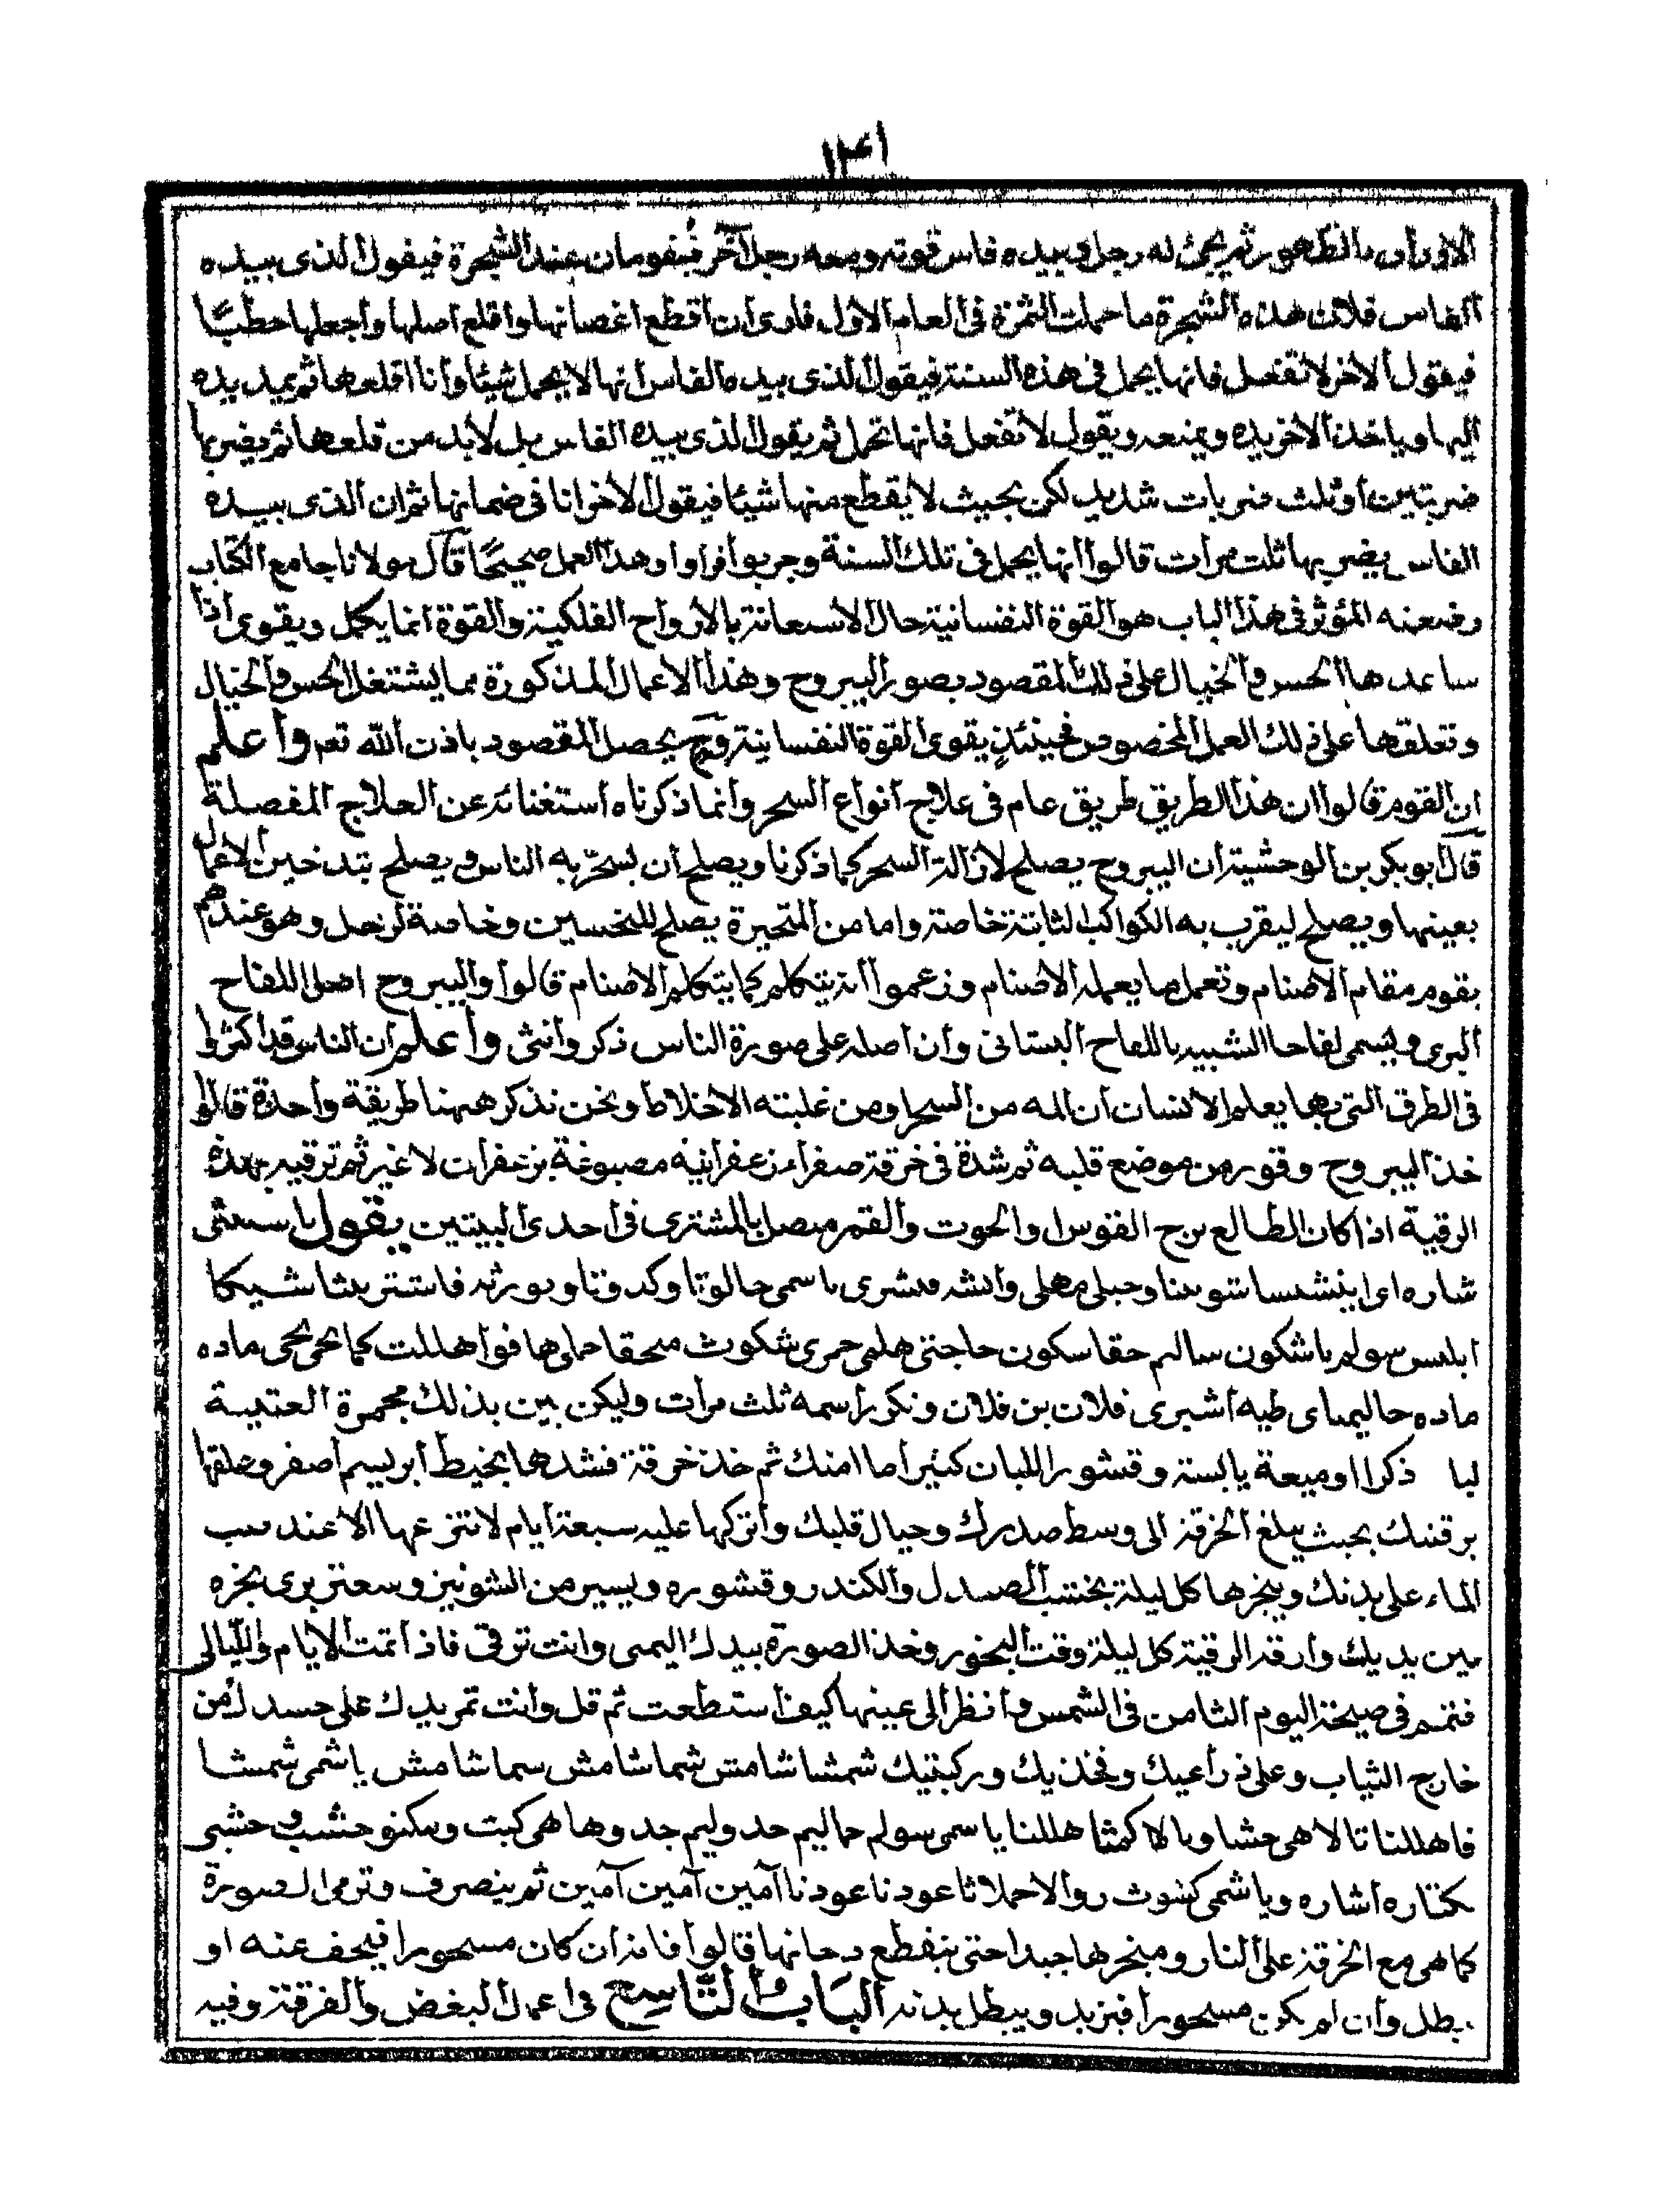 ١٤١
الاوراق بالظهور ثم يجئ له رجل وبيده فاس قوته ومعه رجل آخر فيقومان عند الشجرة فيقول الذى بيده
الفاس فلان هذه الشجرة ما حملت الثمرة فى العام الاول فارى ان اقطع اغصانها واقلع اصلها واجعلها حطبًا
فيقول الاخر لا تفعل فانها يحمل فى هذه السنة فيقول الذى بيده الفاس انها لا يحمل شيئا وانا اقلعها ثم يمد يده
اليها وياخذ الاخر يده ويمنعه ويقول لا تفعل فانها تحمل ثم يقول الذى بيده الفاس بل لابد من قلعها ثم يضربها
ضربتين او ثلث ضربات شديد لكن بحيث لا يقطع منها شيئا فيقول الاخر انا فى ضمانها ثم ان الذى بيده
الفاس يضربها ثلث مرات قالوا انها يحمل فى تلك السنة وجربوا فراوا هذا العمل صحيحًا قال مولانا جامع الكتاب
رضى عنه المؤثر فى هذا الباب هو القوة النفسانية حال الاستعانة بالارواح الفلكية والقوة انما يكمل ويقوى اذا
ساعدها الحس والخيال على ذلك المقصود بصور اليبروح وهذا الاعمال المذكورة مما يشتغل الحس والخيال
وتعلقها على ذلك العمل المخصوص فحينئذٍ يقوى القوة النفسانية وح يحصل المقصود باذن الله تعم واعلم
ان القوم قالوا ان هذا الطريق طريق عام فى علاج انواع السحر وانما ذكرناه استغنائه عن العلاج المفصلة
قال ابو بكر بن الوحشية ان اليبروح يصلح لازالة السحر كما ذكرنا ويصلح ان يسحّر به الناس ويصلح بتدخين الاعمال
بعينها ويصلح ليقرب به الكواكب الثابتة خاصة واما من المتحيرة يصلح للنحسين وخاصة لزحل وهو عندهم
يقوم مقام الاصنام وتعمل ما يعمله الاصنام وزعموا انه يتكلم كما يتكلم الاصنام قالوا واليبروح اصل اللفاح
البرى ويسمى لفاحا الشبيه باللفاح البستانى وان اصله على صورة الناس ذكر وانثى واعلم ان الناس قد اكثروا
فى الطرق التى بها يعلم الانسان ان المه من السحر او من غلبته الاخلاط ونحن نذكر ههنا طريقة واحدة قالوا
خذ اليبروح وقور من موضع قلبه ثم شدة فى خرقة صفراء زعفرانيه مصبوغة بزعفران لا غير ثم ترقيه بهذه
الرقية اذا كان الطالع برج القوس او الحوت والقمر متصل بالمشترى فى احدى البيتين يقول
ابليس سولم ياشكون سالم حقاسكون حاجتى هلمى
ماده فلان بن فلان ونكرر اسمه ثلث مرات وليكن بين بذلك مجمرة العتيبة
ذكرا وميعة يابسة وقشور اللبان كثيرا ما امنك ثم خذ خرقة فشدها بخيط ابريسم اصفر وعلقها
برقبتك بحيث يبلغ الخرقة الى وسط صدرك وحيال قلبك واتركها عليه سبعة ايام لا تنزعها الا عند صب
الماء على بدنك ويبخرها كل ليلة بخشب الصندل والكندر وقشوره ويسير من الشونيز وسعتر برى بخره
بين يديك وارقه الرقية كل ليلة وقت البخور وخذ الصورة بيدك اليمنى وانت ترقى فاذا تمت الايام والليالى
فتقم فى صبيحة اليوم الثامن فى الشمس وانظر الى عينها كيف استطعت ثم قل وانت تمر يدك على جسدك من
خارج الثياب وعلى ذراعيك وفخذيك وركبتيك شمشا شامش شماشامش سماشامش ياشمى شمشا
آمين آمين آمين ثم ينصرف وترمى الصورة
كما هى مع الخرقة على النار ومبخرها جيدا حتى ينقطع دخانها قالوا فانه ان كان مسحورا فيخف عنه او
يبطل وان لم يكن مسحورا فيزيد ويبطل بدنه الباب التاسع فى اعمال البغض والفرقة وفيه